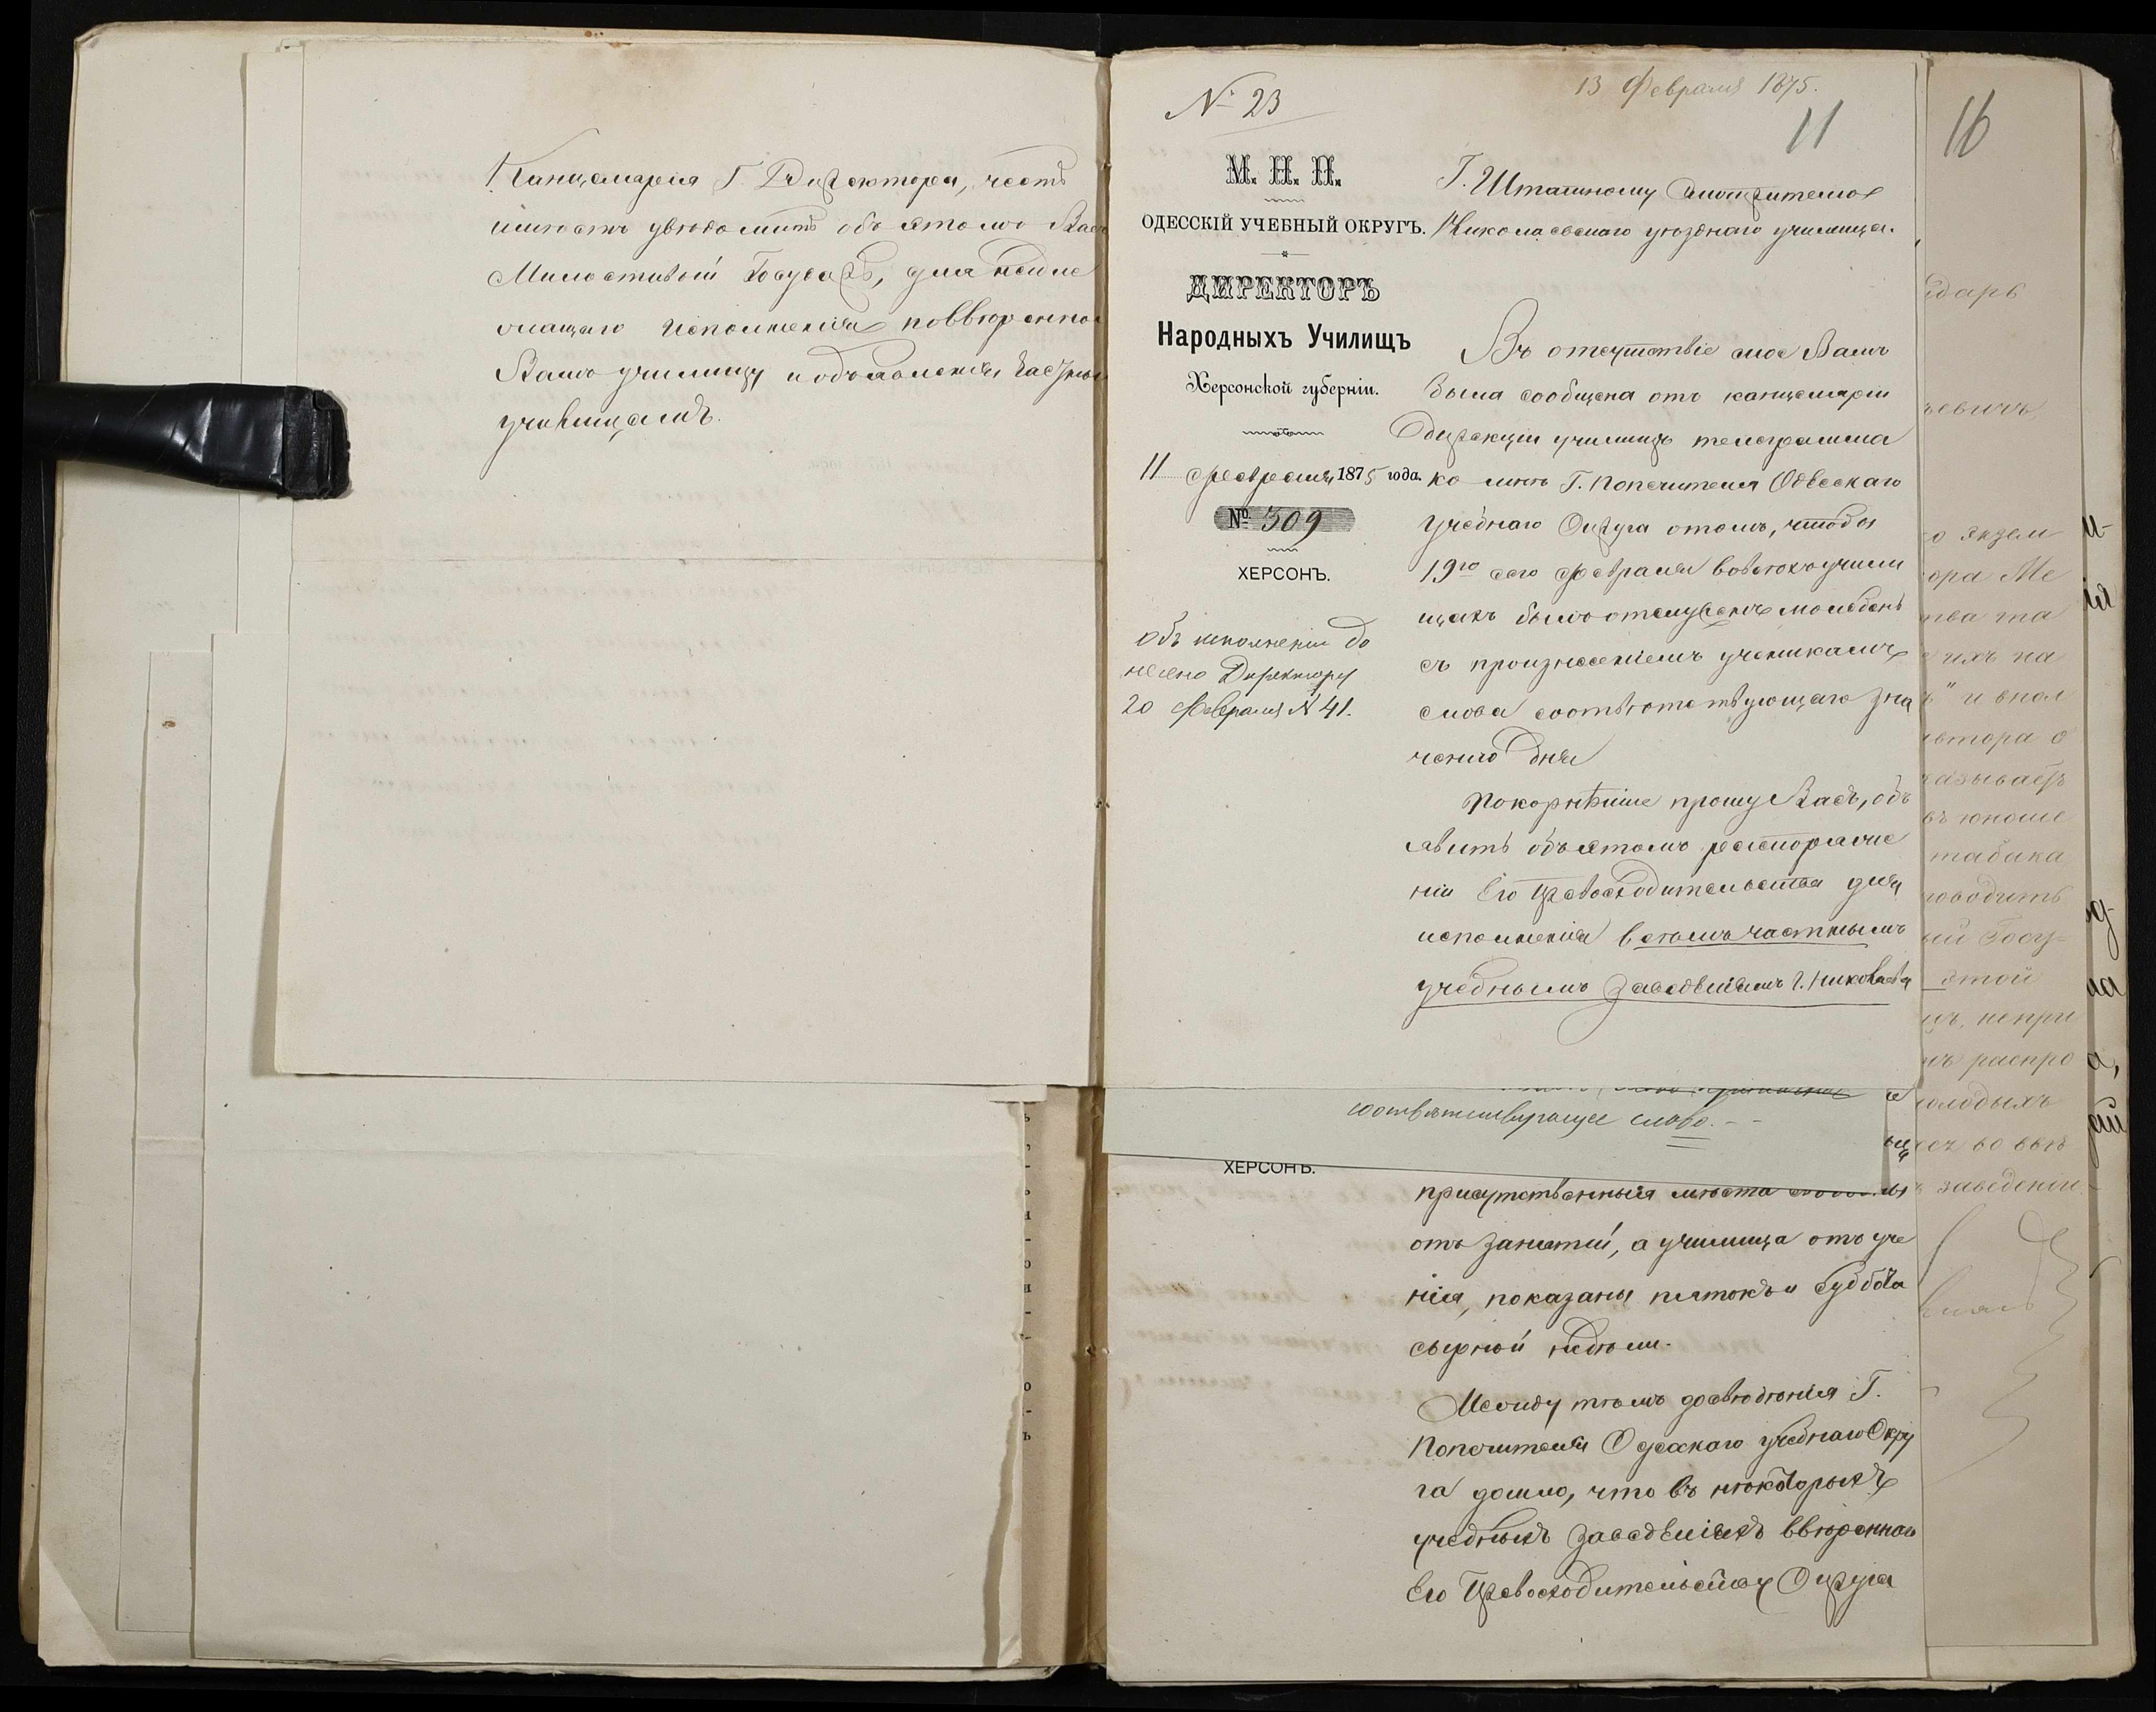 Канцелярія Г. Директора, честь
имѣетъ увѣдомить объ этомъ Васъ
Милостивый Государь, для надле
жащаго исполненія по ввѣренно
Вамъ училищу и объявленія частны
училищамъ.
№ 23
13 Февраля 1875.
11
М. Н. П.
ОДЕССКІЙ УЧЕБНЫЙ ОКРУГЪ.
ДИРЕКТОРЪ
Народныхъ Училищъ
Херсонской губерніи.
11 Февраля 1875 года.
№ 309
ХЕРСОНЪ.
Объ исполненіи до
несено Директору
20 Февраля № 41.
Г. Штатному Смотрителю
Николаевскаго уѣзднаго училища.
Въ отсутствіе мое Вамъ
была сообщена отъ канцеляріи
Дирекціи училищъ телеграмма
ко мнѣ Г. Попечителя Одесскаго
Учебнаго Округа о томъ, чтобы
19го сего Февраля во всѣхъ учили
щахъ былъ отслуженъ молебенъ
съ произнесеніемъ ученикамъ
слова соотвѣтствующаго зна
ченію дня
Покорнѣйше прошу Васъ, объ
явить объ этомъ распоряже
ніи Его Превосходительства для
исполненія всѣмъ частнымъ
учебнымъ заведеніямъ г. Николаева
соотвѣтствующее слово. -
ХЕРСОНЪ.
присутственныя мѣста
отъ занятій, а училища отъ уче
нія, показаны пятокъ и суббота
сырной недѣли.
Между тѣмъ до свѣдѣнія Г.
Попечителя Одесскаго учебнаго Окру
га дошло, что въ нѣкоторыхъ
учебныхъ заведеніяхъ ввѣреннаго
Его Превосходительству Округа
16
дарь
ьевичъ
о экзем
ора Ме
тва та
ихъ на
ъ" и впол
втора о
казываетъ
въ юноше
табака
ководить
ый Госу-
этой
цъ, непри
мъ распро
молодыхъ
во внѣ
заведенiи.